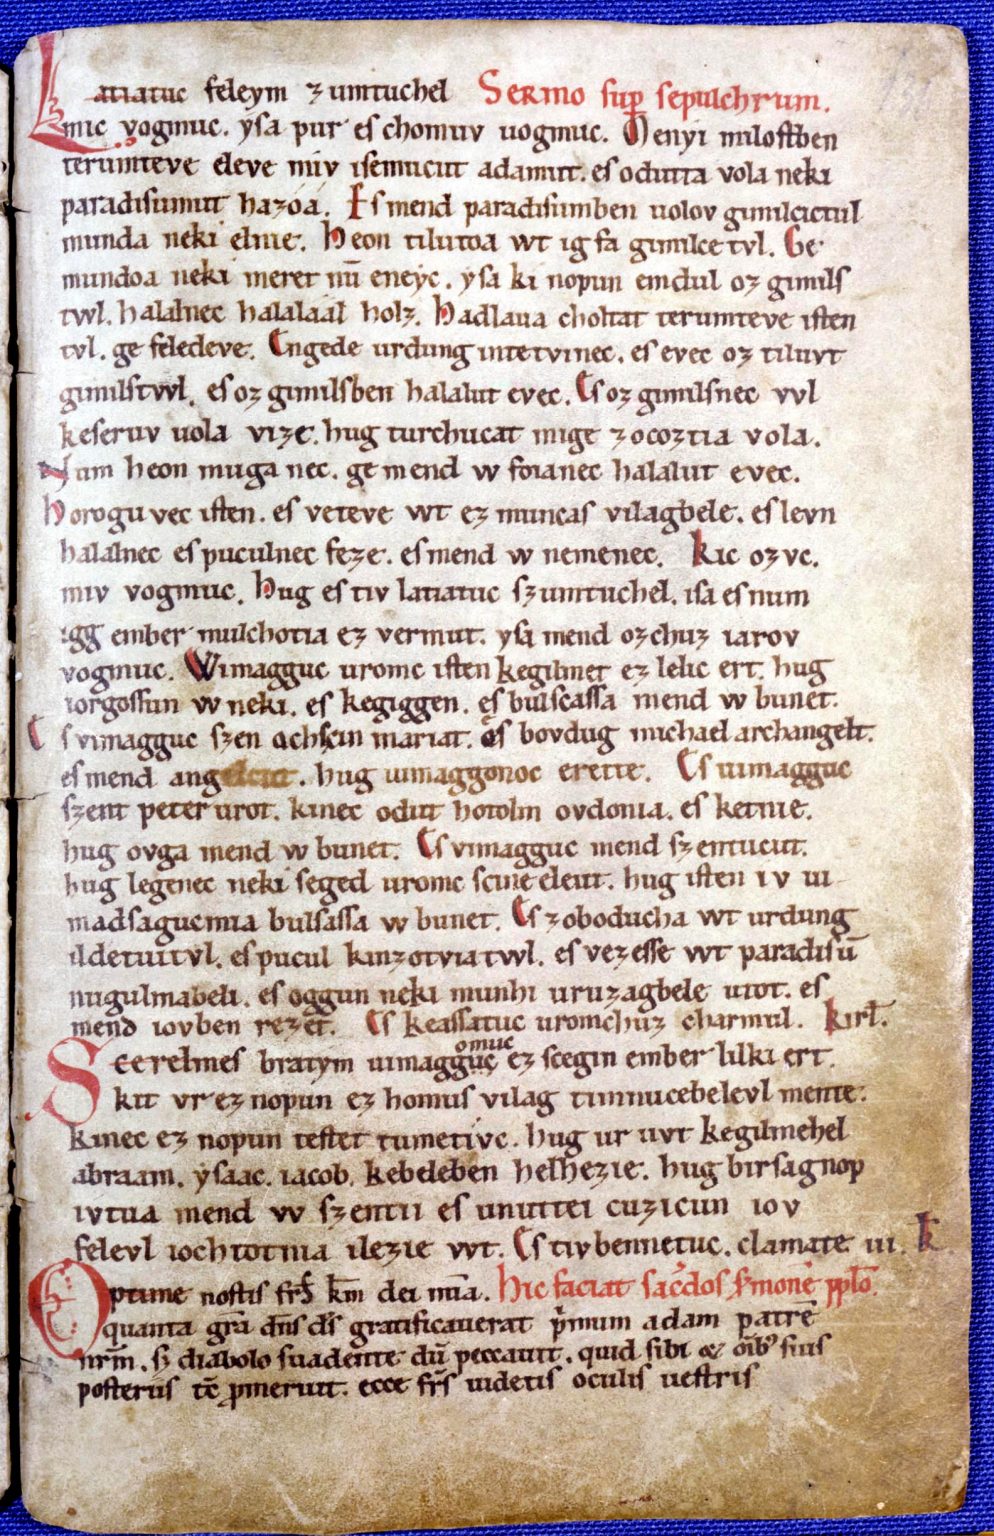 Latiatuc feleym zumtuchel Sermo sup sepulchrum.
mic vogmuc. ysa pur es chomuv uogmuc. Menyi milostben
terumteve eleve miv isemucut adamut. es odutta vola neki
paradisumut hazóá. Es mend paradisumben uolov gimilcictul
munda neki elnie. Heon tilutoa wt ig fa gimilce tvl. Ge
mundoa neki meret nū eneyc. ysa ki nopun emdul oz gimils
twl. halalnec halalaál holz. Hadlaua choltat terumteve isten
tvl. ge feledeve. Engede urdung intetvinec. es evec oz tiluvt
gimilstwl. es oz gimilsben halalut evec. Es oz gimilsnec vvl
keseruv uola vize. hug turchucat mige zocoztia vola.
Num heon muga nec. ge mend w foianec halalut evec.
Horogu vec isten. es veteve wt ez muncas vilagbele. es levn
halalnec es puculnec feze. es mend w nemenec. Kic ozvc.
miv vogmuc. Hug es tiv latiatuc szumtuchel. isa es num
igg ember mulchotia ez vermut. ysa mend ozchuz iarov
vogmuc. Wimagguc uromc isten kegilmet ez lelic ert. hug
iorgossun w neki. es kegiggen. es bulscassa mend w bunet.
Es vimagguc szen achscin mariat. es bovdug michael archangelt.
es mend angelcut. hug uimaggonoc erette. Es uimagguc
szent peter urot. kinec odut hotolm ovdonia. es ketnie.
hug ovga mend w bunet. Es vimagguc mend szentucut.
hug legenec neki seged uromc scine eleut. hug isten iv ui
madsagucmia bulsassa w bunet. Es zoboducha wt urdung
ildetuitvl. es pucul kinzotviatwl. es vezesse wt paradisū
nugulmabeli. es oggun neki munhi uruzagbele utot. es
mend iovben rezet. Es keassatuc uromchuz charmul. kirł.
Scerelmes bratym uimagguc omuc ez scegin ember lilki ert.
kit vr ez nopun ez homus vilag timnucebelevl mente.
kinec ez nopun testet tumetivc. hug ur uvt kegilmehel
abraam. ysaac. iacob. kebeleben helhezie. hug birsagnop
ivtua mend vv szentii es unuttei cuzicun iov
felevl iochtotnia ilezie vvt. Es tiv bennetuc. clamate iii. k.
Optime nostis frs km dei mia. Hic faciat sacdos smone pplo.
quanta gra dns ds gratificauerat pmum adam patrē
nrm. sz diabolo suadente dū peccauit. quid sibi & oib suis
posteris tē pmeruit. ecce frs uidetis oculis uestris